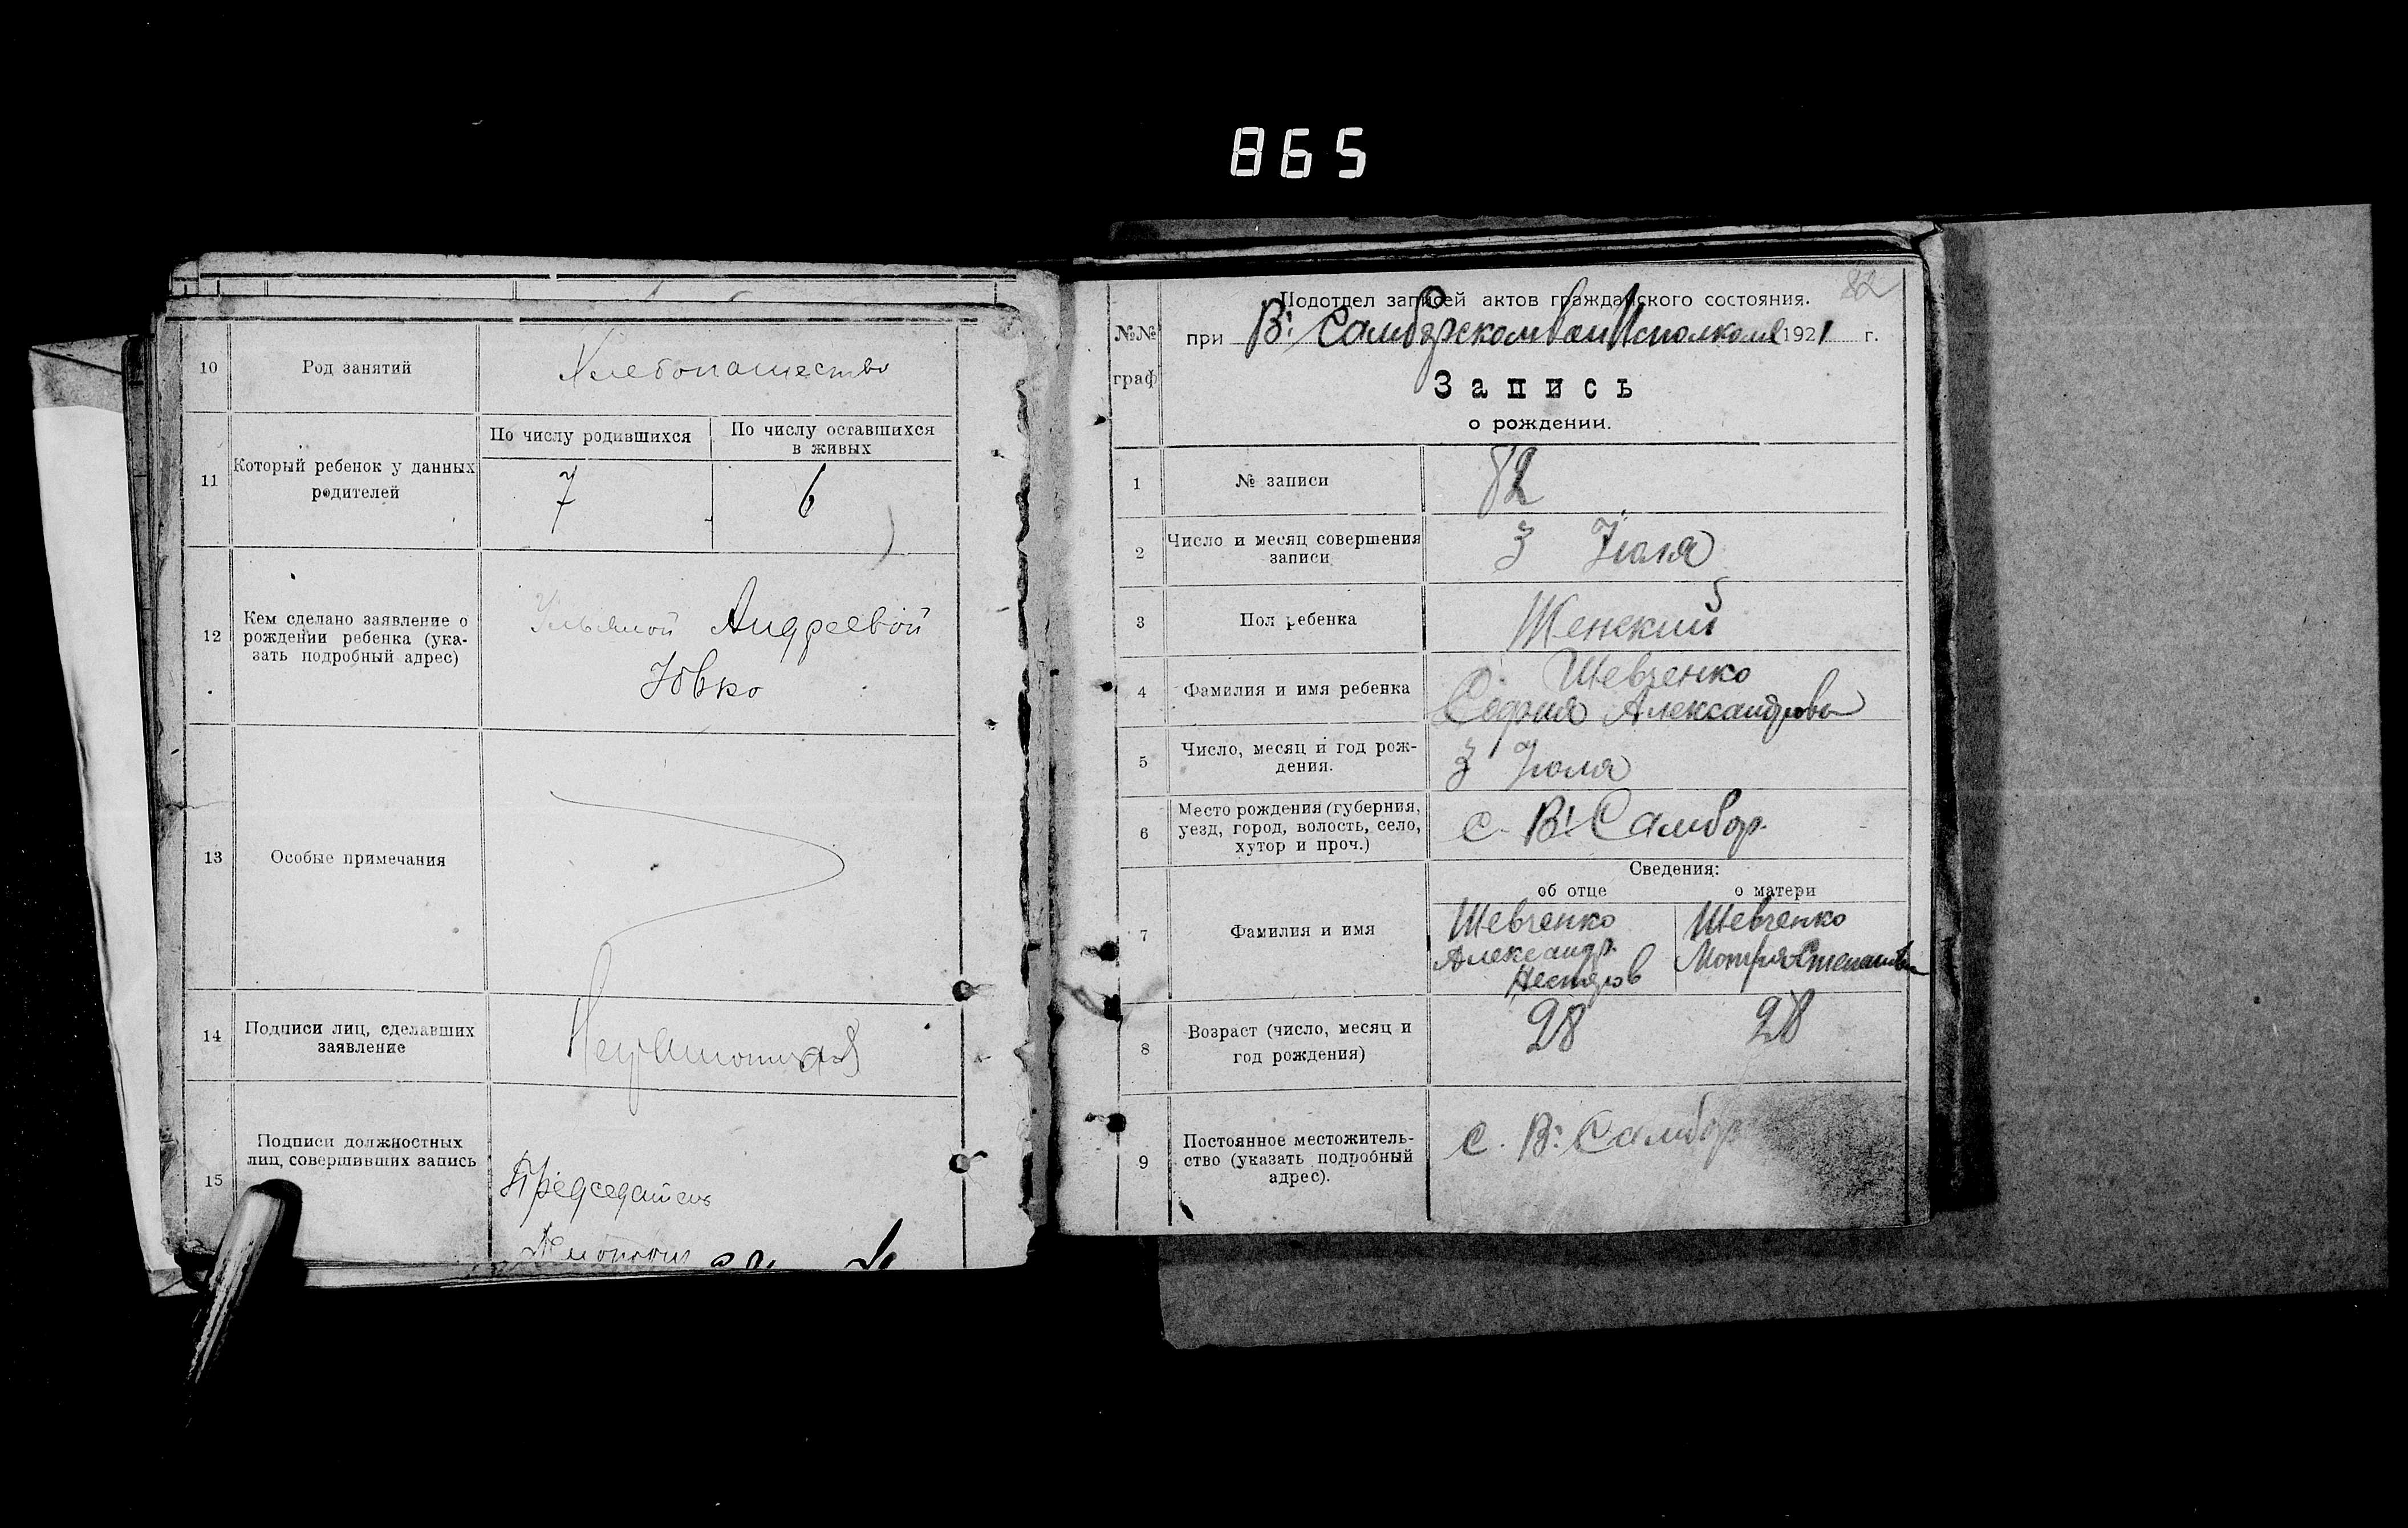 865
10
Род занятий
Хлебопашество
11
Который ребенок у данных
родителей
По числу родившихся
По числу оставшихся
в живых
7
6
12
Кем сделано заявление о
рождении ребенка (ука-
зать подробный адрес)
Ульяной Андреевой
Ювко
13
Особые примечания
14
Подписи лиц, сделавших
заявление
Неграмотная
15
Подписи должностных
лиц, совершивших запись
Председатель
82
№№
граф
Подотдел записей актов гражданского состояния.
при В: Самборском Вол Исполкоме 1921 г.
Запись
о рождении.
1
№ записи
82
2
Число и месяц совершения
записи
3 Июля
3
Пол ребенка
Женский
4
Фамилия и имя ребенка
Шевченко
София Александрова
5
Число, месяц и год рож-
дения.
3 Июля
6
Место рождения (губерния,
уезд, город, волость, село,
хутор и проч.)
с. В: Самбор.
Сведения:
об отце
о матери
7
Фамилия и имя
Шевченко
Александр.
Нестеров
Шевченко
Мотрия Степанова
8
Возраст (число, месяц и
год рождения)
28
28
9
Постоянное местожитель-
ство (указать подробный
адрес).
с. В: Самбор